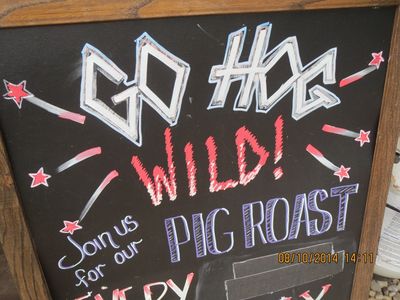 GO HOG
WILD!
Join us
for our
PIG ROAST
EVERY
08/10/2014 14:11